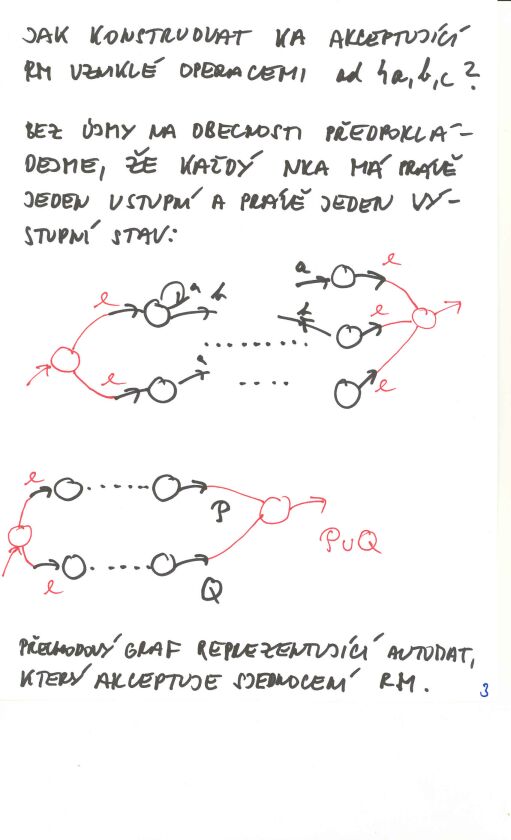 JAK KONSTRUOVAT KA AKCEPTUJÍCÍ
RM VZNIKLÉ OPERACEMI ad 4a,b,c?
BEZ ÚJMY NA OBECNOSTI PŘEDPOKLÁ-
DEJME, ŽE KAŽDÝ NKA MÁ PRÁVĚ
JEDEN VSTUPNÍ A PRÁVĚ JEDEN VÝ-
STUPNÍ STAV:
e a b a e
e b e
e a e
e P
P∪Q
e Q
PŘECHODOVÝ GRAF REPREZENTUJÍCÍ AUTOMAT,
KTERÝ AKCEPTUJE SJEDNOCENÍ RM.
3